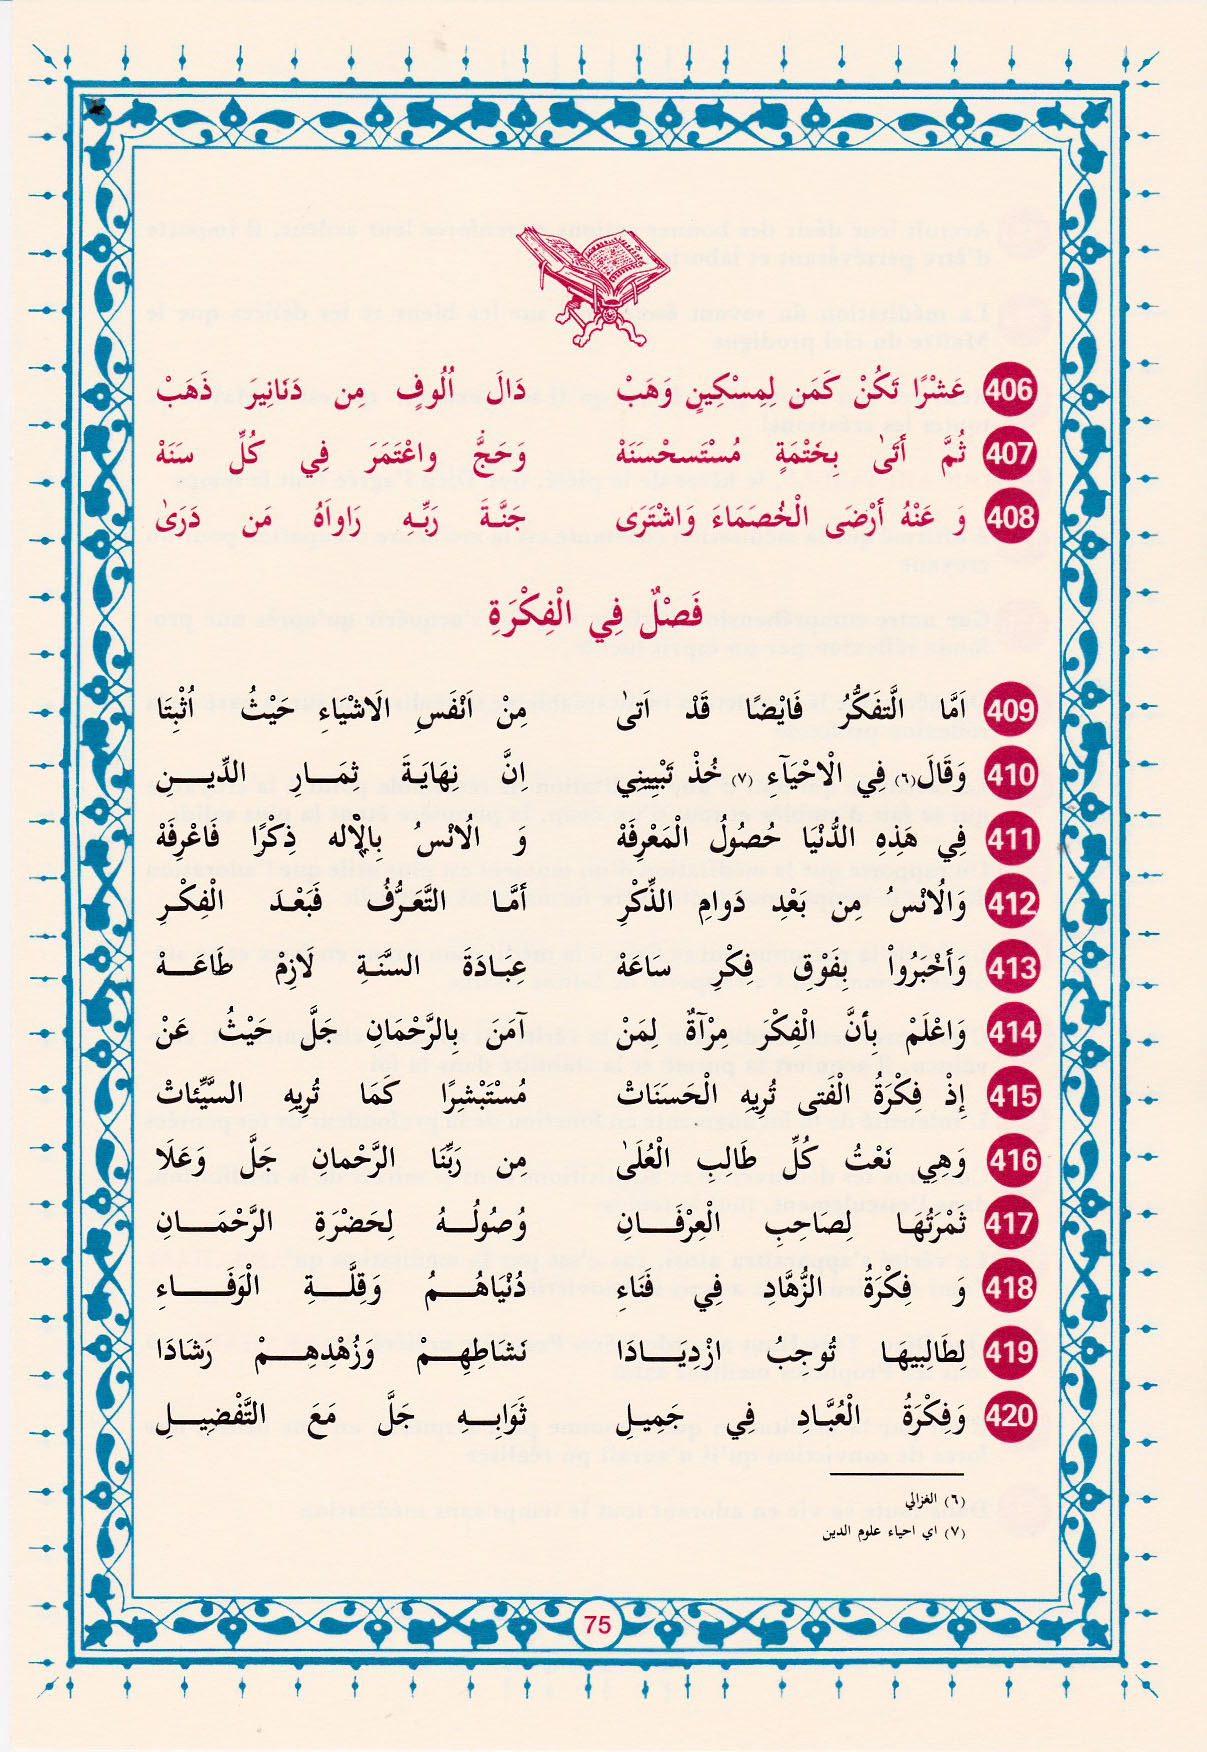 406 عَشْرًا تَكُنْ كَمَن لِمِسْكِينٍ وَهَبْ دَالَ اُلُوفٍ مِن دَنَانِيرَ ذَهَبْ
407 ثُمَّ أَتَىٰ بِخَتْمَةٍ مُسْتَسحْسَنَهْ وَحَجَّ واعْتَمَرَ فِي كُلِّ سَنَهْ
408 وَ عَنْهُ أرْضَى الْخُصَمَاءَ وَاشْتَرَى جَنَّةَ رَبِّهِ رَاواَهُ مَن دَرَىٰ
فَصْلٌ فِي الْفِكْرَةِ
409 اَمَّا الَّتفَكُّرُ فَايْضًا قَدْ اَتىٰ مِنْ اَنْفَسِ الَاشْيَاءِ حَيْثُ اُثْبِتَا
410 وَقَالَ(٦) فِي الْاحْيَآءِ (٧) خُذْ تَبْيِينِي اِنَّ نِهَايَةَ ثِمَـــارِ الدِّيــنِ
411 فِي هَذِهِ الدُّنْيَا حُصُولُ الْمَعْرِفَهْ وَ الُانْسُ بِالْاِله ذِكْرًا فَاعْرِفَهْ
412 وَالُانْسُ مِن بَعْدِ دَوامِ الذِّكْرِ أمَّـا التَّعَـرُّفُ فَبَعْـدَ الْفِكْـرِ
413 وَأخْبَرُواْ بِفَوْقِ فِكْرِ سَاعَهْ عِبَادَةَ السَّنَـةِ لَازِمْ طَاعَـــهْ
414 وَاعْلَمْ بِأنَّ الْفِكْرَ مِرْآةٌ لِمَنْ آمَنَ بِالرَّحْمَانِ جَلَّ حَيْثُ عَنْ
415 إِذْ فِكْرَةُ الْفَتى تُرِيهِ الْحَسَنَاتْ مُسْتَبْشِرًا كَمَا تُرِيهِ السَّيِّئاتْ
416 وَهِي نَعْتُ كُلِّ طَالِبِ الْعُلَىٰ مِن رَبِّنَا الرَّحْمانِ جَلَّ وَعَلَا
417 ثَمْرَتُهَـا لِصَاحِبِ الْعِرْفَـــانِ وُصُولُــهُ لِحَضْرَةِ الرَّحْمَــــانِ
418 وَ فِكْرَةُ الزُّهَّادِ فِي فَنَاءِ دُنْيَاهُــمُ وَقِلَّــةِ الْوَفَــــاءِ
419 لِطَالِبِيهَـا تُوجبُ ازْدِيَـــادَا نَشَاطِهِــمْ وَزُهْدِهِـــمْ رَشَادَا
420 وَفِكْرَةُ الْعُبَّـادِ فِي جَمِيـلِ ثَوَابِــهِ جَلَّ مَعَ التَّفْضِيــلِ
(٦) الغزالي
(٧) اي احياء علوم الدين
75